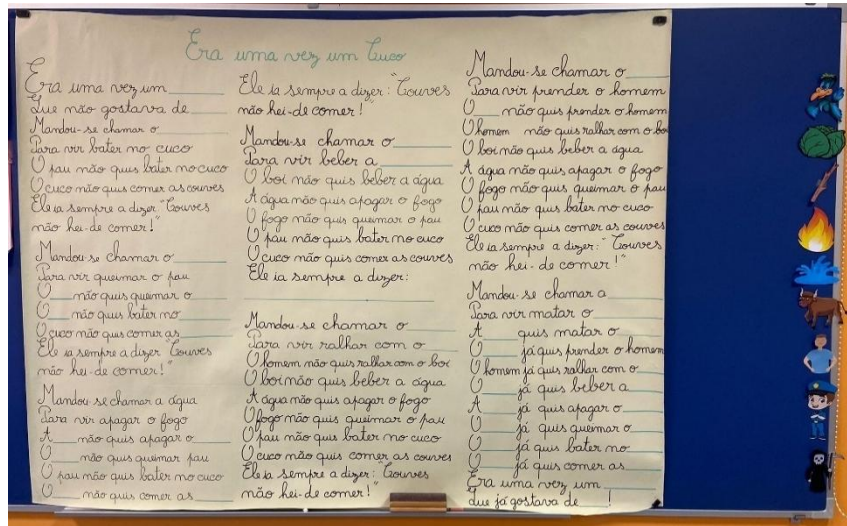 Era uma vez um Cuco
Era uma vez um ______
Que não gostava de ______
Mandou-se chamar o ______
Para vir bater no cuco
O pau não quis bater no cuco
O cuco não quis comer as couves
Ele ia sempre a dizer: "Couves
não hei-de comer!"
Mandou-se chamar o ______
Para vir queimar o pau
O ___ não quis queimar o ______
O ___ não quis bater no ______
O cuco não quis comer as ______
Ele ia sempre a dizer "Couves
não hei-de comer!"
Mandou-se chamar a água
Para vir apagar o fogo
A ___ não quis apagar o ______
O ___ não quis queimar pau
O pau não quis bater no cuco
O ___ não quis comer as ______
Ele ia sempre a dizer: "Couves
não hei-de comer!"
Mandou-se chamar o ______
Para vir beber a ______
O boi não quis beber a água
A água não quis apagar o fogo
O fogo não quis queimar o pau
O pau não quis bater no cuco
O cuco não quis comer as couves
Ele ia sempre a dizer:
______
Mandou-se chamar o ______
Para vir ralhar com o ______
O homem não quis ralhar com o boi
O boi não quis beber a água
A água não quis apagar o fogo
O fogo não quis queimar o pau
O pau não quis bater no cuco
O cuco não quis comer as couves
Ele ia sempre a dizer: "Couves
não hei-de comer!"
Mandou-se chamar o ______
Para vir prender o homem
O ___ não quis prender o homem
O homem não quis ralhar com o boi
O boi não quis beber a água
A água não quis apagar o fogo
O fogo não quis queimar o pau
O pau não quis bater no cuco
O cuco não quis comer as couves
Ele ia sempre a dizer: "Couves
não hei-de comer!"
Mandou-se chamar a ______
Para vir matar o ______
A ___ quis matar o ______
O ___ já quis prender o homem
O homem já quis ralhar com o ______
O ___ já quis beber a ______
A ___ já quis apagar o ______
O ___ já quis queimar o ______
O ___ já quis bater no ______
O ___ já quis comer as ______
Era uma vez um ______
Que já gostava de ______!